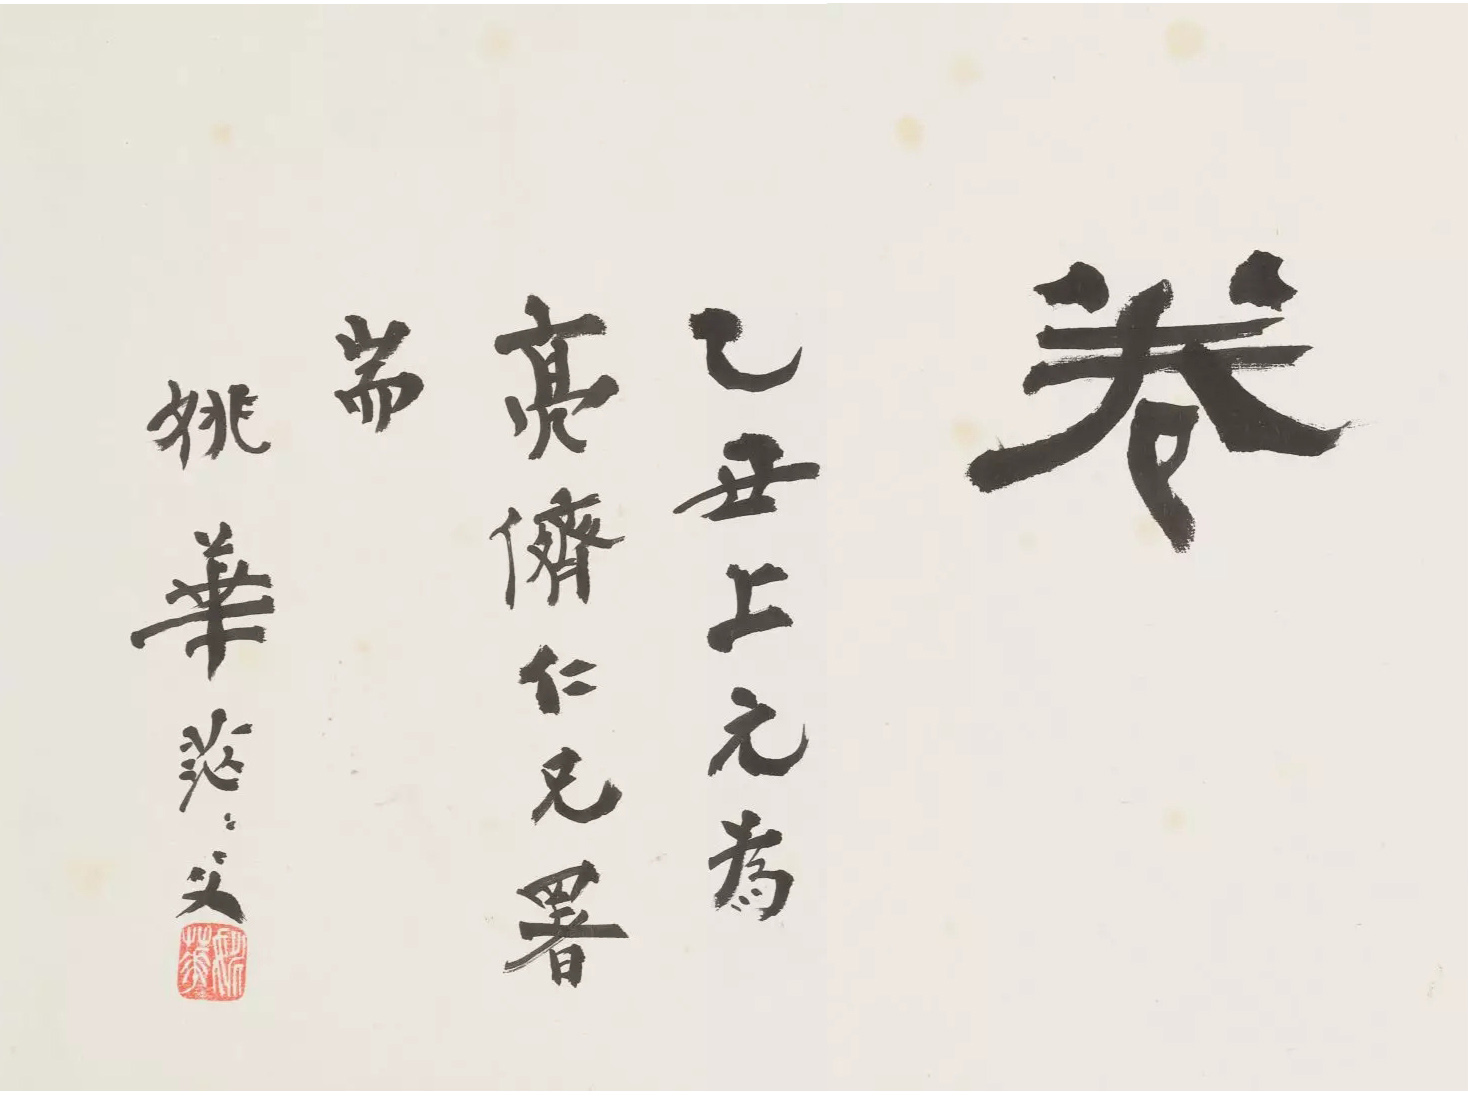 卷
乙丑上元為
亮儕仁兄署
耑
姚華茫茫父
姚華